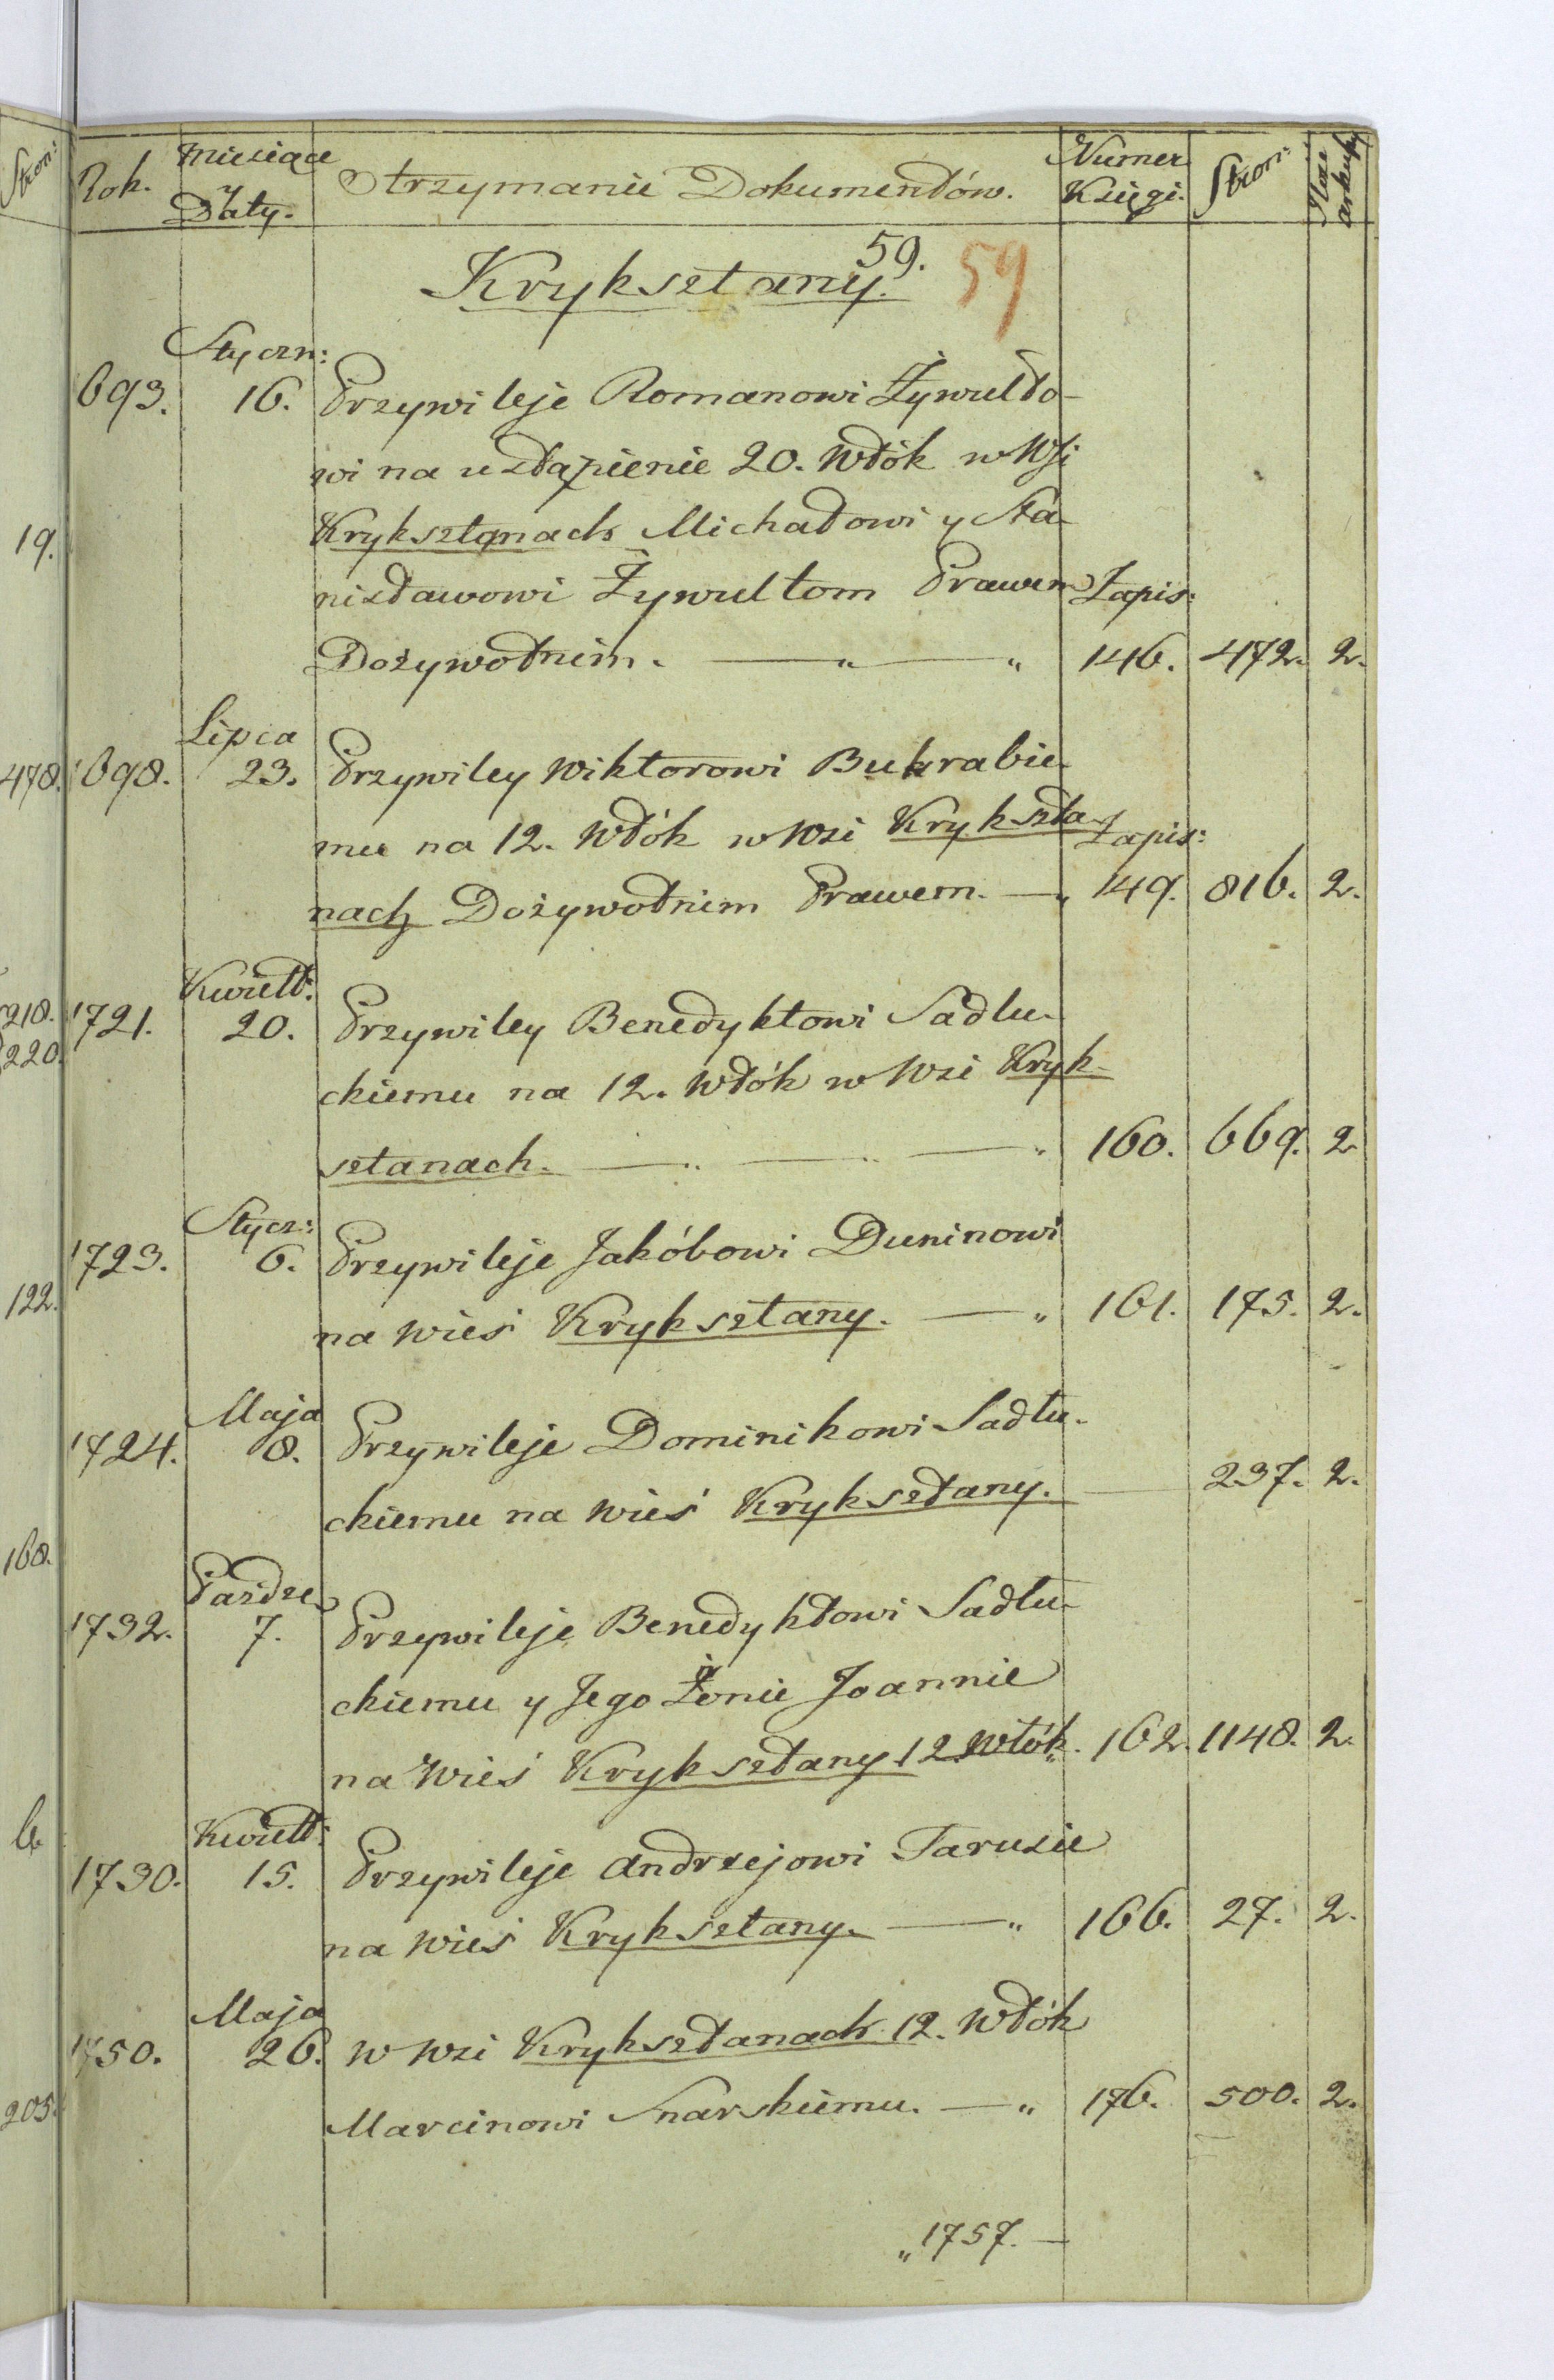 Stron:
Rok. Miesiące y Daty. Otrzymanie Dokumentów. Numer Księgi. Stron: Ilość arkuszy
59.
Kryksztany. 59
Styczn:
693. 16. Przywileje Romanowi Żywulto-
wi na ustąpienie 20. Włók w Wsi
Kryksztanach Michałowi y Sta-
19.
nisławowi Żywultom Prawem Zapis:
Dożywotnim. 146. 472. 2.
Lipca
478. 698. 23. Przywiley Wiktorowi Bukrabie-
mu na 12. Włók w Wsi Krykszta- Zapis:
nach Dożywotnim Prawem. 149. 816. 2.
Kwiett:
218. 1721. 20. Przywiley Benedyktowi Sadlu-
220.
ckiemu na 12. Włók w Wsi Kryk-
sztanach. 160. 669. 2
Stycz:
1723. 6. Przywileje Jakóbowi Duninowi
122.
na wieś Kryksztany. 161. 175. 2.
Maja
1724. 8. Przywileje Dominikowi Sadłu-
ckiemu na wieś Kryksztany. 237. 2.
168.
Paźdze
1732. 7. Przywileje Benedyktowi Sadłu-
ckiemu y Jego Żonie Joannie
na wieś Kryksztany 12 Włók. 162. 1148. 2.
Kwiett:
1730. 15. Przywileje Andrzejowi Tarusie
na wieś Kryksztany. 166. 27. 2.
Maja
1750. 26. w wsi Kryksztanach 12. Włók
205.
Marcinowi Snarskiemu. 176. 500. 2.
„1757.